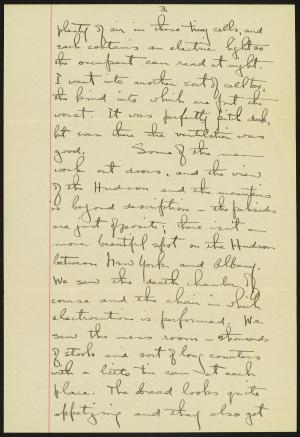 3.
plenty of air in these tiny cells, and
each contains an electric light so
the occupant can read at night.
I went into another sort of cell too,
the kind into which are put the
worst. It was perfectly pitch dark,
but even there the ventilation was
good. Some of the men
work out doors, and the view
of the Hudson and the mountains
is beyond description – the palisades
are just opposite; there isn't a
more beautiful spot on the Hudson
between New York and Albany.
We saw the death chamber of
course and the chair in which
electrocution is performed. We
saw the mess room – thousands
of stools and sort of long counters
with a little tin can at each
place. The bread looks quite
appetizing and they also get